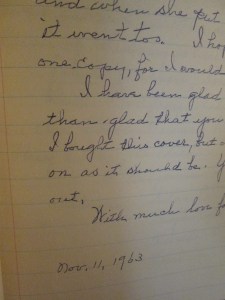 and when she put
it went too. I ho
one copy, for I would
I have been glad
than glad that you
I bought this cover, but
on as it should be. Y
out.
With much love f
Nov. 11, 1963